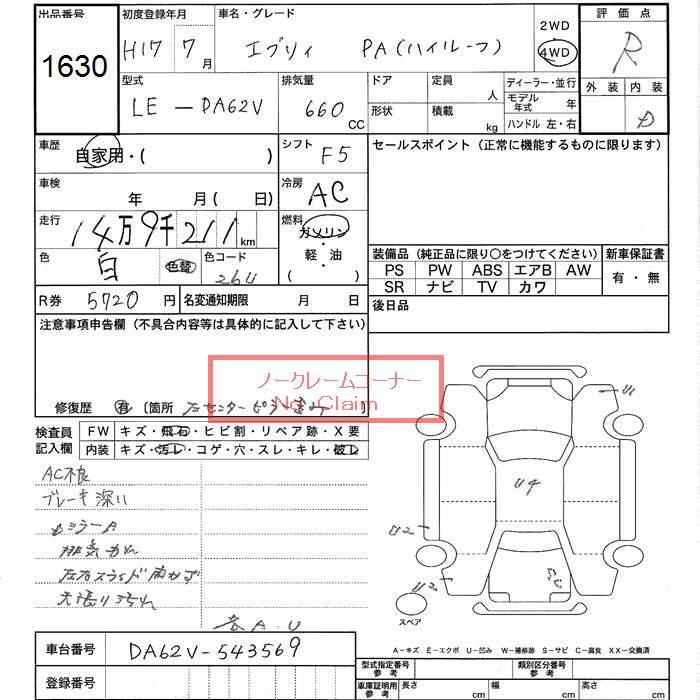 出品番号
1630
初度登録年月
H17 7月
車名・グレード
エブリィ PA(ハイルーフ)
2WD
4WD
評価点
R
外装 内装
D
型式
LE-DA62V
排気量
660 CC
ドア
形状
定員
人
積載
kg
ディーラー・並行
モデル年式 年
ハンドル 左・右
車歴
自家用・( )
シフト
F5
セールスポイント(正常に機能するものに限ります)
車検
年 月(日)
冷房
AC
走行
14万9千211km
燃料
ガソリン
・
軽・油
( )
色
白
色替
色コード
26U
装備品(純正品に限り○をつけてください)
新車保証書
PS PW ABS エアB AW
SR ナビ TV カワ
有・無
R券 5720円
名変通知期限 月 日
後日品
注意事項申告欄(不具合内容等は具体的に記入して下さい)
ノークレームコーナー
No Claim
修復歴 有 〔箇所 左センターピラー歪み 〕
検査員記入欄
FW キズ・飛石・ヒビ割・リペア跡・X要
内装 キズ・汚レ・コゲ・穴・スレ・キレ・破レ
AC不良
ブレーキ深い
排気もれ
左右スライド開かず
天張り汚れ
各A.U
U1
U4
U2
U2
スペア
A-キズ E-エクボ U-凹み W-補修跡 S-サビ C-腐食 XX-交換済
車台番号
DA62V-543569
登録番号
型式指定番号 参考
類別区分番号 参考
車庫証明用 参考
長さ cm
幅 cm
高さ cm